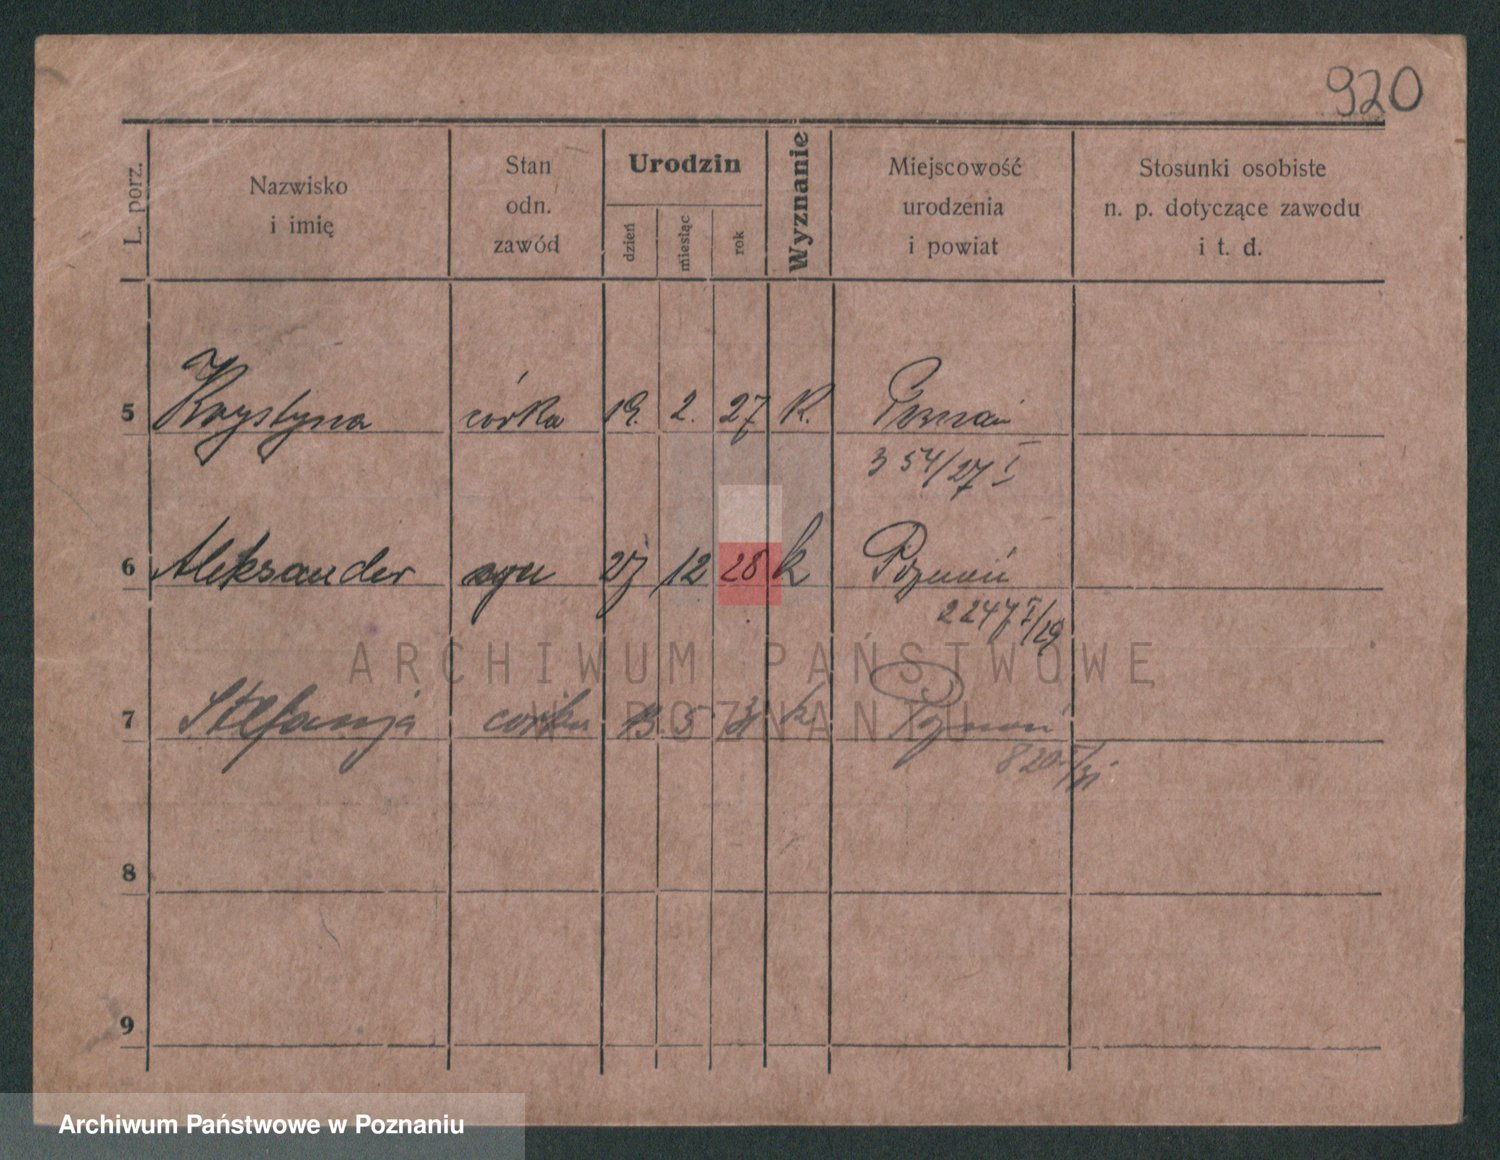 920
L. porz.
Nazwisko
i imię
Stan
odn.
zawód
Urodzin
dzień
miesiąc
rok
Wyznanie
Miejscowość
urodzenia
i powiat
Stosunki osobiste
n. p. dotyczące zawodu
i t. d.
5 Krystyna córka 19. 2. 27 K. Poznań
354/27 I
6 Aleksander syn 27 12 28 k Poznań
2247 I/29
ARCHIWUM PAŃSTWOWE
W POZNANIU
7 Stefanja corka 13. 5 k Poznań
820 I/31
8
9
Archiwum Państwowe w Poznaniu